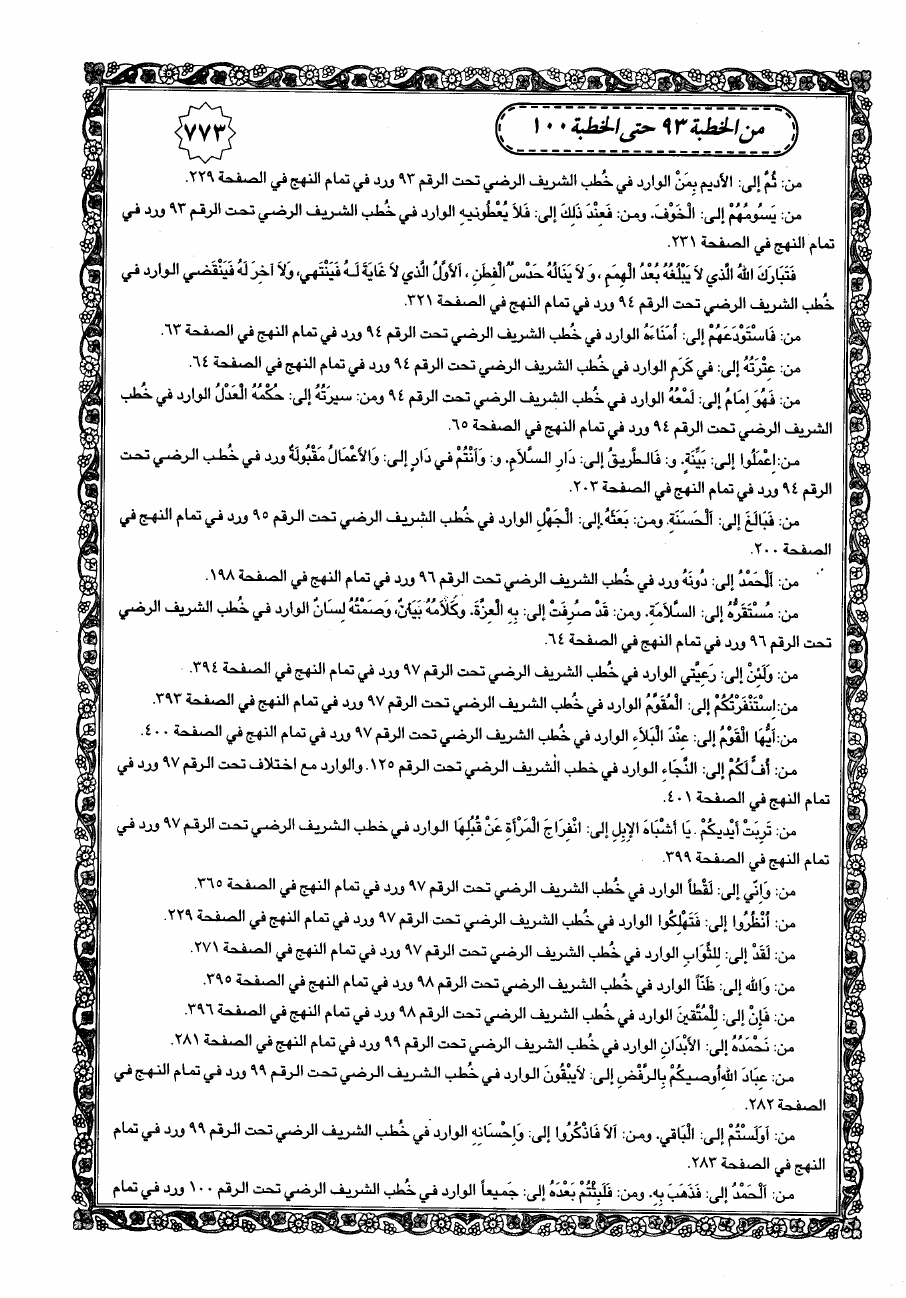 من الخطبة ٩٣ حتى الخطبة ١٠٠
٧٧٣
من: ثُمَّ إلى: الأديم بِمَنْ الوارد في خُطب الشريف الرضي تحت الرقم ٩٣ ورد في تمام النهج في الصفحة ٢٢٩.
من: يَسُومُهُمْ إلى: الْخَوْفَ. ومن: فَعِنْدَ ذَلِكَ إلى: فَلاَ يُعْطُونيهِ الوارد في خُطب الشريف الرضي تحت الرقم ٩٣ ورد في
تمام النهج في الصفحة ٢٣١.
فَتَبَارَكَ اللهُ الَّذي لاَ يَبْلُغُهُ بُعْدُ الْهِمَمِ، وَلاَ يَنَالُهُ حَدْسُ الْفِطَنِ، اَلأوَّلُ الَّذي لاَ غَايَةَ لَهُ فَيَنْتَهي، وَلاَ آخِرَ لَهُ فَيَنْقَضي الوارد في
خُطب الشريف الرضي تحت الرقم ٩٤ ورد في تمام النهج في الصفحة ٣٢١.
من: فَاسْتَوْدَعَهُمْ إلى: أُمَنَاءَهُ الوارد في خُطب الشريف الرضي تحت الرقم ٩٤ ورد في تمام النهج في الصفحة ٦٣.
من: عِتْرَتُهُ إلى: في كَرَمٍ الوارد في خُطب الشريف الرضي تحت الرقم ٩٤ ورد في تمام النهج في الصفحة ٦٤.
من: فَهُوَ إمَامُ إلى: لَمْعُهُ الوارد في خُطب الشريف الرضي تحت الرقم ٩٤ ومن: سيرَتُهُ إلى: حُكْمُهُ الْعَدْلُ الوارد في خُطب
الشريف الرضي تحت الرقم ٩٤ ورد في تمام النهج في الصفحة ٦٥.
من: اِعْمَلُوا إلى: بَيِّنَةٍ. و: فَالطَّريقُ إلى: دَارِ السَّلاَمِ. و: وَأنْتُمْ في دَارِ إلى: وَالأَعْمَالُ مَقْبُولَةٌ ورد في خُطب الرضي تحت
الرقم ٩٤ ورد في تمام النهج في الصفحة ٢٠٣.
من: فَبَالَغَ إلى: اَلْحَسَنَةِ. ومن: بَعَثَهُ إلى: الْجَهْلِ الوارد في خُطب الشريف الرضي تحت الرقم ٩٥ ورد في تمام النهج في
الصفحة ٢٠٠.
من: اَلْحَمْدُ إلى: دُونَهُ ورد في خُطب الشريف الرضي تحت الرقم ٩٦ ورد في تمام النهج في الصفحة ١٩٨.
من: مُسْتَقَرُّهُ إلى: السَّلاَمَةِ. ومن: قَدْ صُرِفَتْ إلى: بِهِ الْعِزَّةَ. وَكَلاَمُهُ بَيَانٌ، وَصَمْتُهُ لِسَانٌ الوارد في خُطب الشريف الرضي
تحت الرقم ٩٦ ورد في تمام النهج في الصفحة ٦٤.
من: وَلَئِنْ إلى: رَعِيَّتي الوارد في خُطب الشريف الرضي تحت الرقم ٩٧ ورد في تمام النهج في الصفحة ٣٩٤.
من: اِسْتَنْفَرْتُكُمْ إلى: الْمُقَوَّمُ الوارد في خُطب الشريف الرضي تحت الرقم ٩٧ ورد في تمام النهج في الصفحة ٣٩٣.
من: أيُّهَا الْقَوْمُ إلى: عِنْدَ الْبَلاَءِ الوارد في خُطب الشريف الرضي تحت الرقم ٩٧ ورد في تمام النهج في الصفحة ٤٠٠.
من: أُفٍّ لَكُمْ إلى: النَّجَاءِ الوارد في خطب الشريف الرضي تحت الرقم ١٢٥. والوارد مع اختلاف تحت الرقم ٩٧ ورد في
تمام النهج في الصفحة ٤٠١.
من: تَرِبَتْ أيْديكُمْ. يَا أشْبَاهَ الإبِلِ إلى: انْفِرَاجَ الْمَرْأةِ عَنْ قُبُلِهَا الوارد في خطب الشريف الرضي تحت الرقم ٩٧ ورد في
تمام النهج في الصفحة ٣٩٩.
من: وَإنّي إلى: لَقْطاً الوارد في خُطب الشريف الرضي تحت الرقم ٩٧ ورد في تمام النهج في الصفحة ٣٦٥.
من: اُنْظُرُوا إلى: فَتَهْلِكُوا الوارد في خُطب الشريف الرضي تحت الرقم ٩٧ ورد في تمام النهج في الصفحة ٢٢٩.
من: لَقَدْ إلى: لِلثَّوَابِ الوارد في خُطب الشريف الرضي تحت الرقم ٩٧ ورد في تمام النهج في الصفحة ٢٧١.
من: وَاللهِ إلى: ظَنّاً الوارد في خُطب الشريف الرضي تحت الرقم ٩٨ ورد في تمام النهج في الصفحة ٣٩٥.
من: فَإنْ إلى: لِلْمُتَّقينَ الوارد في خُطب الشريف الرضي تحت الرقم ٩٨ ورد في تمام النهج في الصفحة ٣٩٦.
من: نَحْمَدُهُ إلى: الأبْدَانِ الوارد في خُطب الشريف الرضي تحت الرقم ٩٩ ورد في تمام النهج في الصفحة ٢٨١.
من: عِبَادَ اللهِ أُوصيكُمْ بِالرَّفْضِ إلى: لاَيَبْقُونَ الوارد في خُطب الشريف الرضي تحت الرقم ٩٩ ورد في تمام النهج في
الصفحة ٢٨٢.
من: أوَلَسْتُمْ إلى: الْبَاقي. ومن: ألاَ فَاذْكُرُوا إلى: وَإحْسَانِهِ الوارد في خُطب الشريف الرضي تحت الرقم ٩٩ ورد في تمام
النهج في الصفحة ٢٨٣.
من: اَلْحَمْدُ إلى: فَذَهَبَ بِهِ. ومن: فَلَبِثْتُمْ بَعْدَهُ إلى: جَميعاً الوارد في خُطب الشريف الرضي تحت الرقم ١٠٠ ورد في تمام